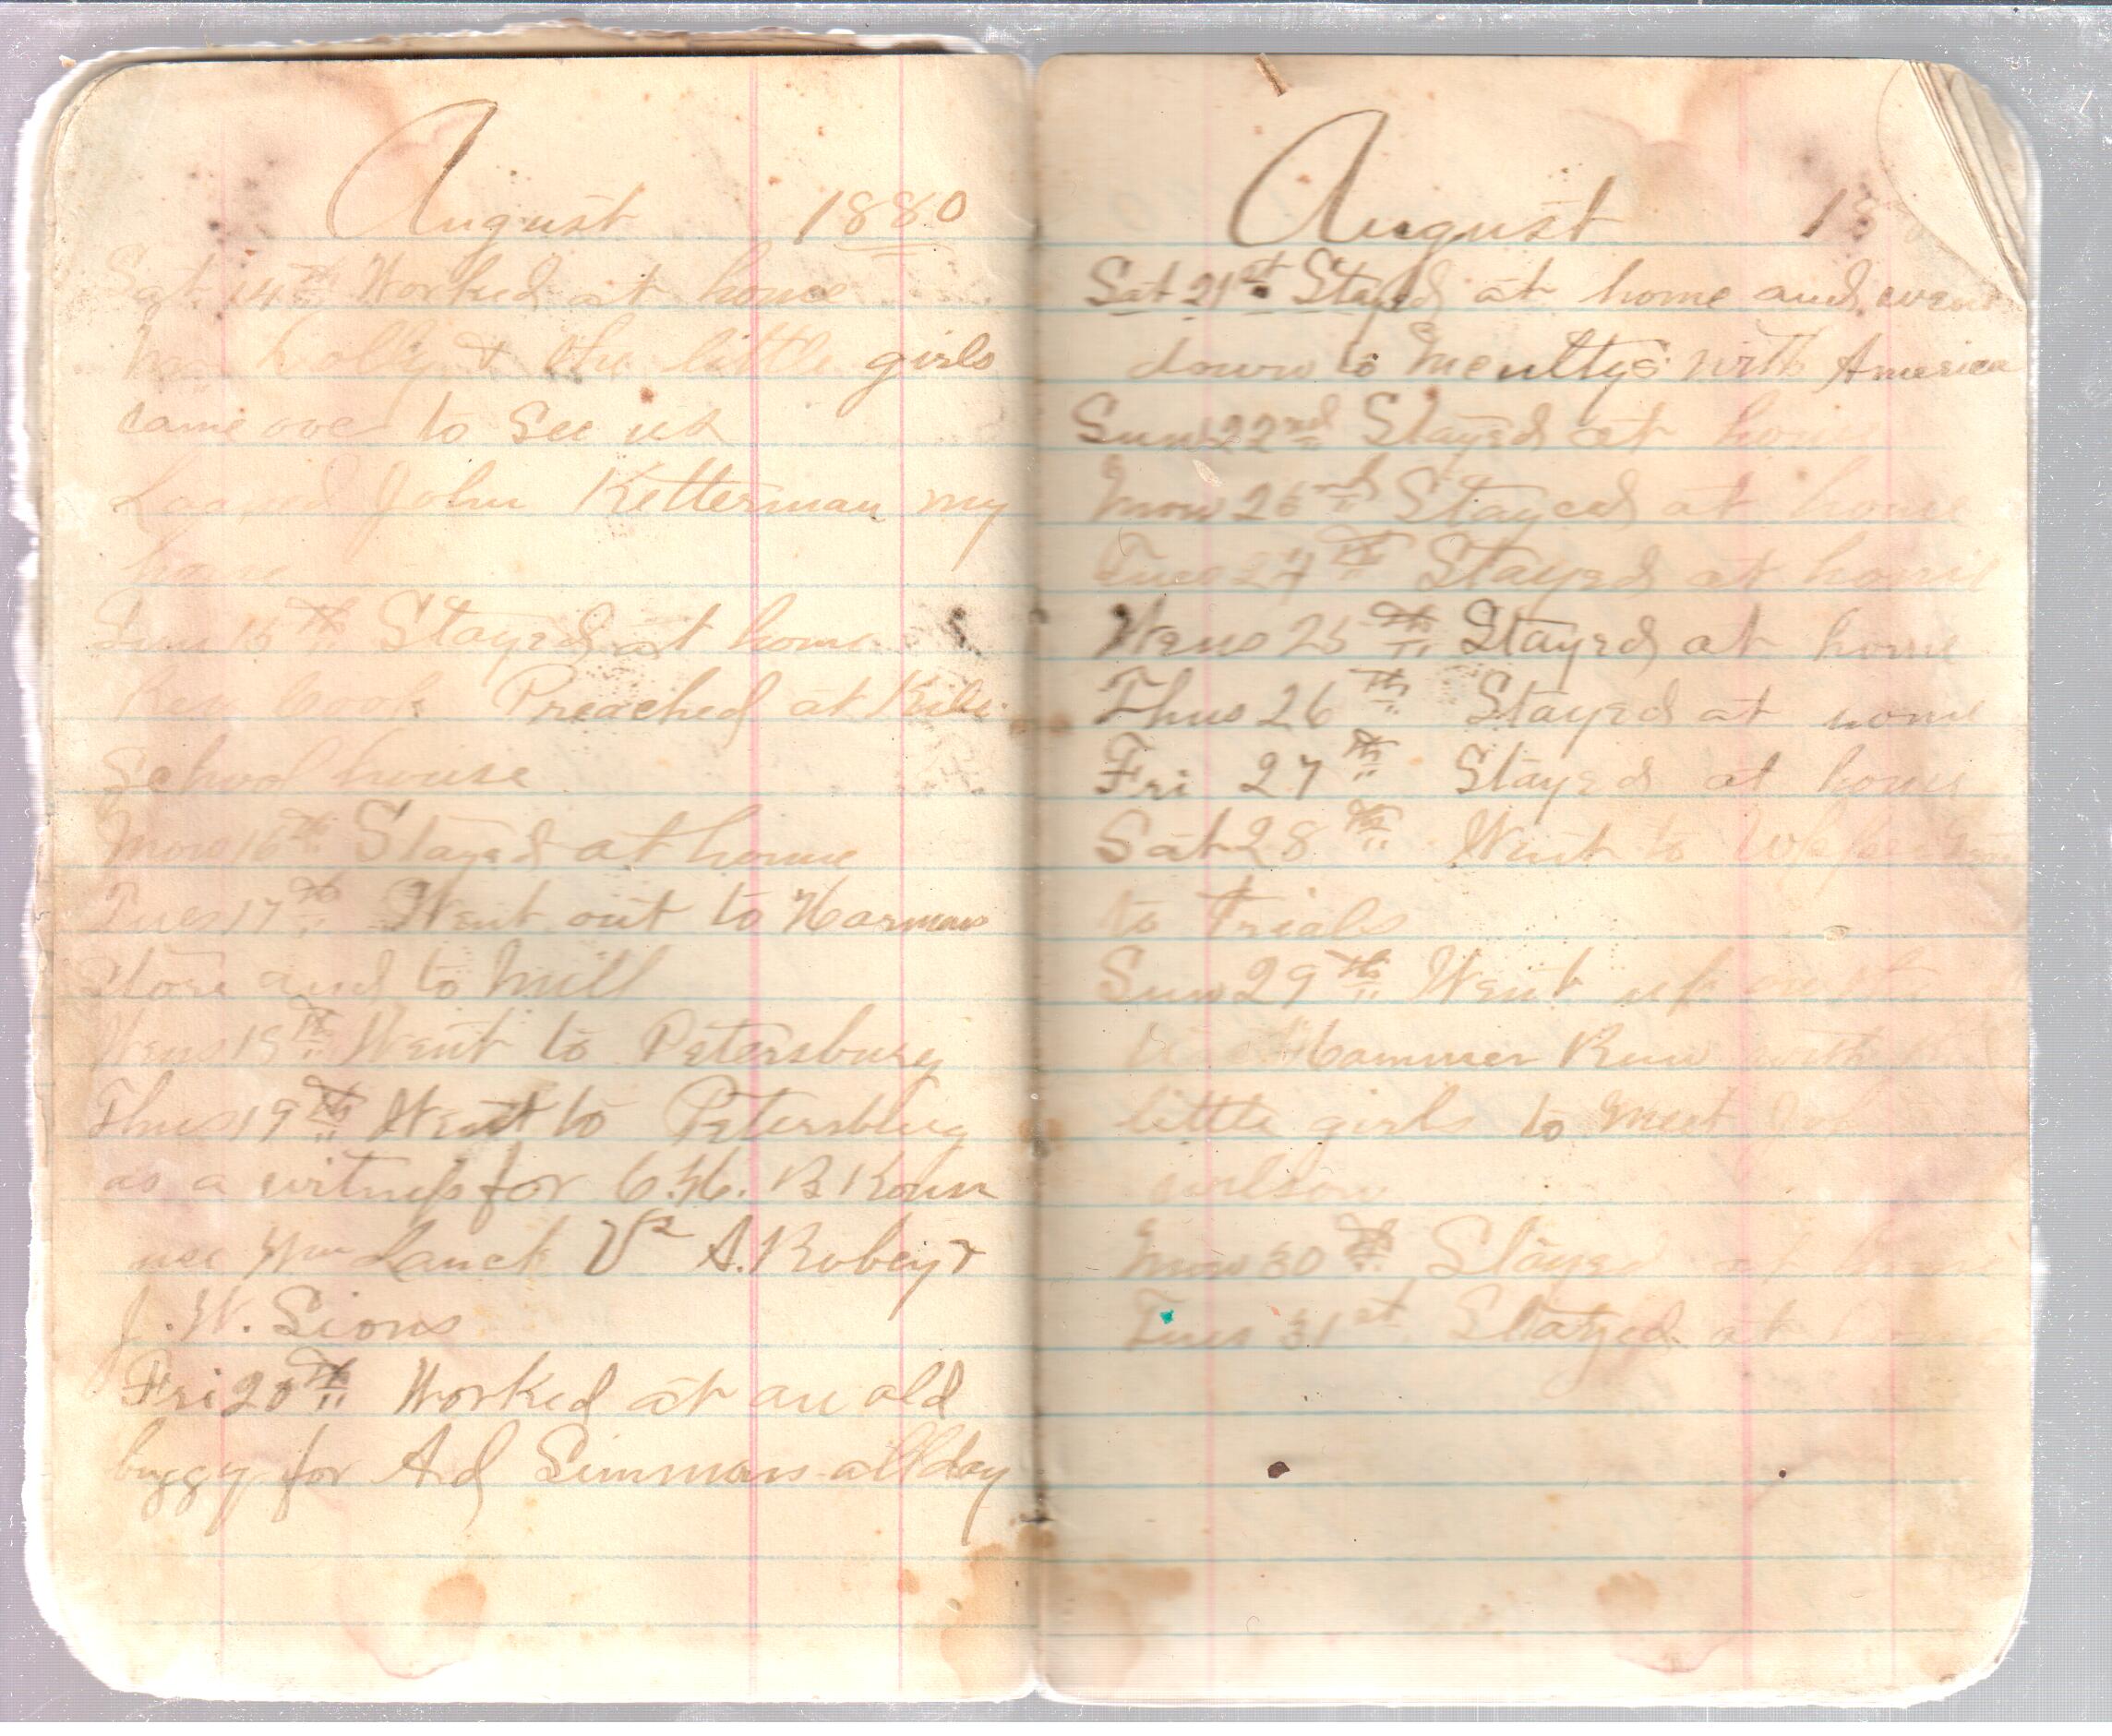 August 1880
Sat 14th Worked at home
& the little girls
came over to See us
Loaned John Ketterman my

Sun 15th Stayed at home
Rev Cook Preached at
School house
Mon 16th Stayed at home
Tues 17th Went out to Harmans
Store and to Mill
Wens 18th Went to Petersburg
Thus 19th Went to Petersburg
as a witness for C. H. B
use Wm Lanck Vs A. Robey &
J. W. Sions
Fri 20th Worked at an old
buggy for Ad Simmons all day
August
Sat 21st Stayed at home and went
down to with America
Sun 22nd Stayed at home
Mon Stayed at home
Tues Stayed at home
Wens 25th Stayed at home
Thus 26th Stayed at home
Fri 27th Stayed at home
Sat 28th Went to
to Trials
Sun 29th Went up
Hammer Run with
little girls to meet
wilson
Mon 30th Stayed at home
Tues 31st Stayed at